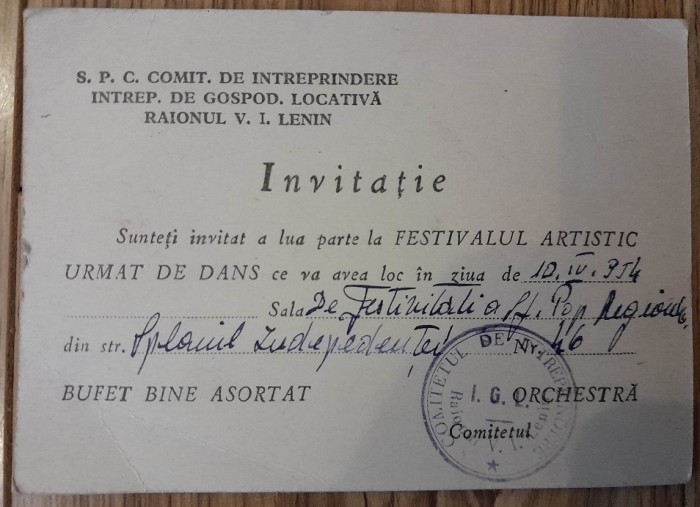 S. P. C. COMIT. DE INTREPRINDERE
INTREP. DE GOSPOD. LOCATIVĂ
RAIONUL V. I. LENIN
Invitație
Sunteți invitat a lua parte la FESTIVALUL ARTISTIC
URMAT DE DANS ce va avea loc în ziua de 10. IV. 954
Sala De Festivitati a Sf. Pop. Regional
din str. Splaiul Independenței Nr. 46
BUFET BINE ASORTAT ORCHESTRĂ
Comitetul
COMITETUL DE INTREPRINDERE
I. G. L.
Raion V. I. Lenin